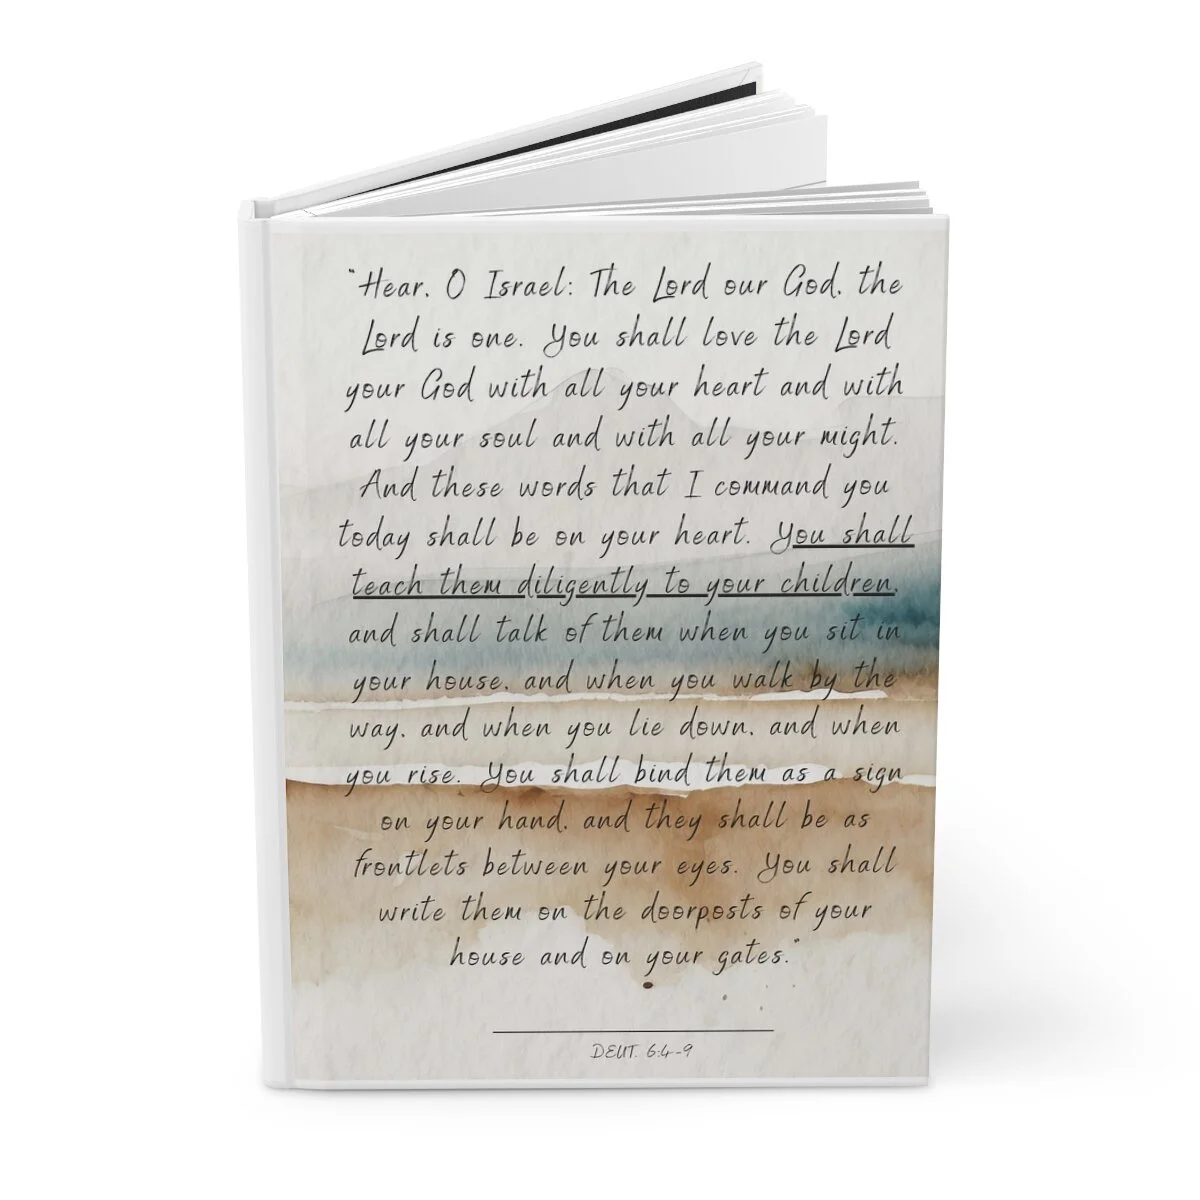 "Hear, O Israel: The Lord our God, the
Lord is one. You shall love the Lord
your God with all your heart and with
all your soul and with all your might.
And these words that I command you
today shall be on your heart. You shall
teach them diligently to your children,
and shall talk of them when you sit in
your house, and when you walk by the
way, and when you lie down, and when
you rise. You shall bind them as a sign
on your hand, and they shall be as
frontlets between your eyes. You shall
write them on the doorposts of your
house and on your gates."
DEUT. 6:4-9